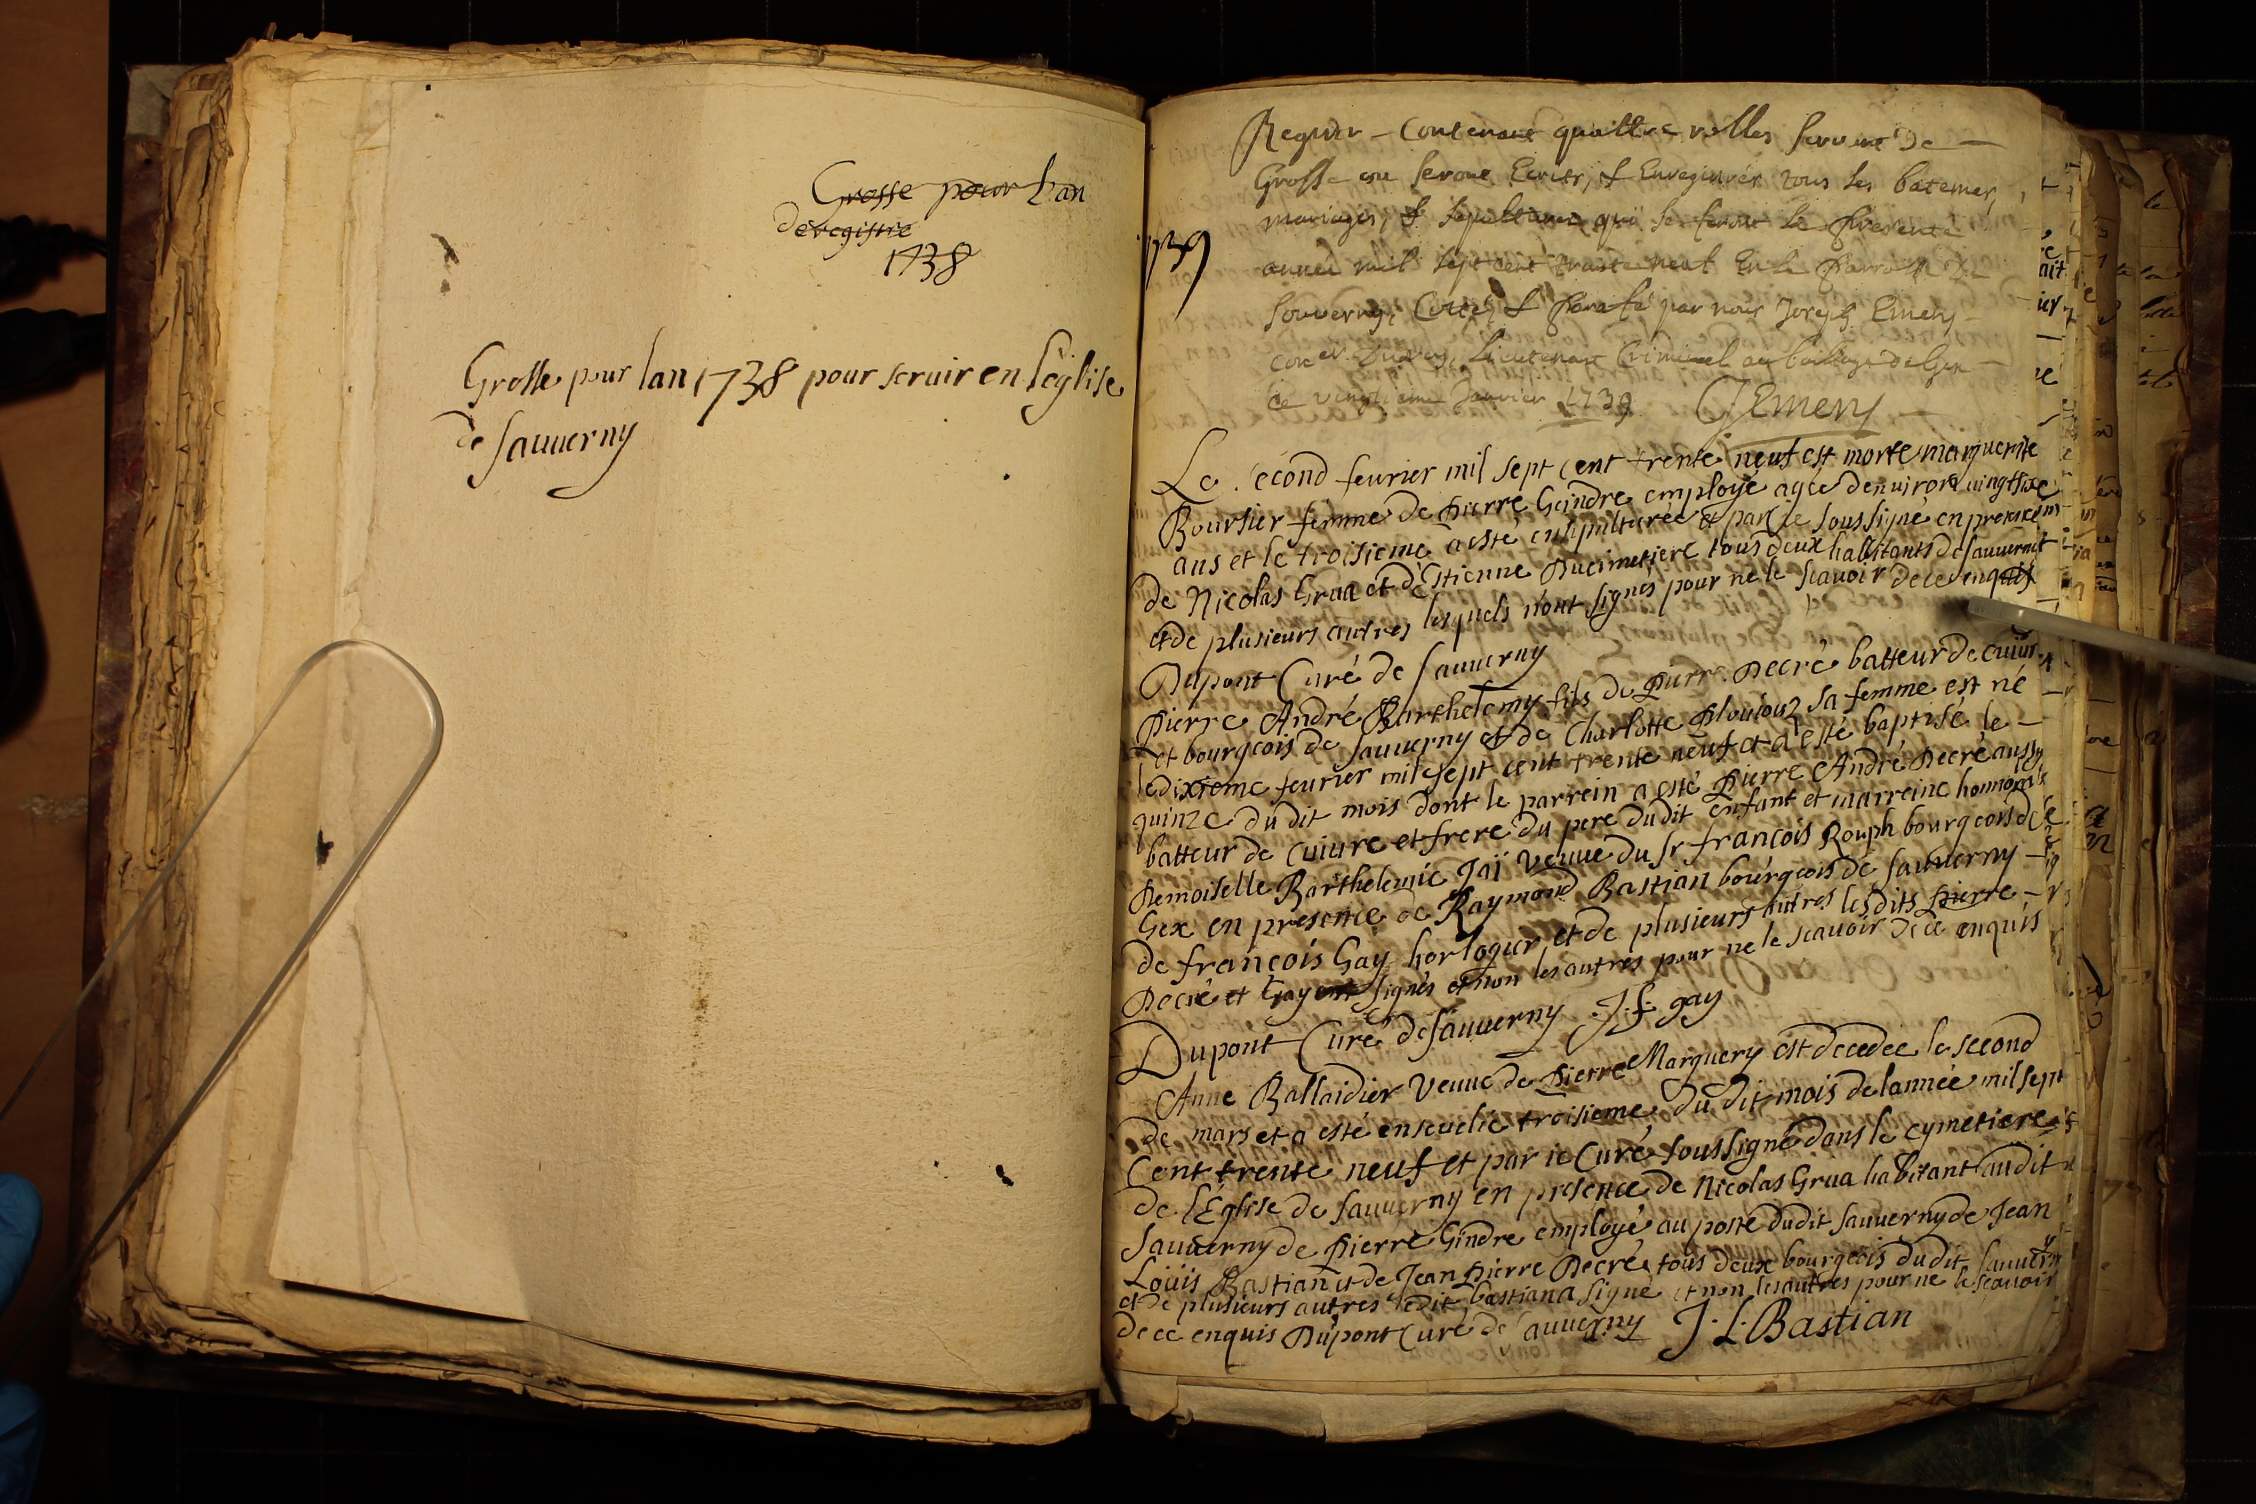 Grosse pour lan
de registre
1738
Grosse pour lan 1738 pour seruir en l'eglise
de sauuerny
1739
Regitre Contenant quattre rolles servant de
Grosse ou seront Ecrits, & Enregitrés tous les batemes,
mariages, & sepultures qui se feront la presente
année mil sept cent trante neuf En la parroisse de
Souverny, Cotté, & Parafé par nous Joseph Emery
Lieutenant Criminel au bailliage de Gex
ce vingtieme Janvier 1739 Emery
Le second feurier mil sept cent trente neuf est morte marguerite
Boursier femme de pierre Geindre employé agée denuiron uingt six
ans et le troisieme a esté ensepulturée et par ie soussigné en presence
de Nicolas Grua et d'Estienne Ducimetiere tous deux habitants de sauuernit
et de plusieurs autres lesquels n'ont signés pour ne le scauoir de ce enquis
Dupont Curé de sauuerny
Pierre André Barthelemy fils de pierre Decré batteur de cuiure
et bourgeois de sauuerny et de Charlotte sa femme est né
le dixieme feurier mil sept cent trente neuf et a esté baptisé le
quinze du dit mois dont le parrein a esté Pierre André Decré aussy
batteur de cuiure et frere du pere du dit enfant et marreine honnorable
Demoiselle Barthelemie Jaï veuue du Sr francois Rouph bourgeois de
Gex en presence de Raymond Bastian bourgeois de sauuerny
de francois Gay horloger, et de plusieurs autres lesdits pierre
Decré et Gay ont signés et non les autres pour ne le scauoir de ce enquis
Dupont Curé de sauuerny J. f. gay
Anne Ballaidier veuue de Pierre Marquery est decedee le second
de mars et a esté enseuelie troisieme du dit mois de lannée mil sept
Cent trente neuf et par ie Curé soussigné dans le cymetiere
de l'Eglise de sauuerny en presence de Nicolas Grua habitant audit
Sauuerny de Pierre Gindre employé au poste dudit sauuerny de Jean
Loüis Bastian et de Jean Pierre Decré tous deux bourgeois dudit sauuerny
et de plusieurs autres ledit bastian a signé et non les autres pour ne le scauoir
de ce enquis Dupont Curé de sauuerny J. L. Bastian